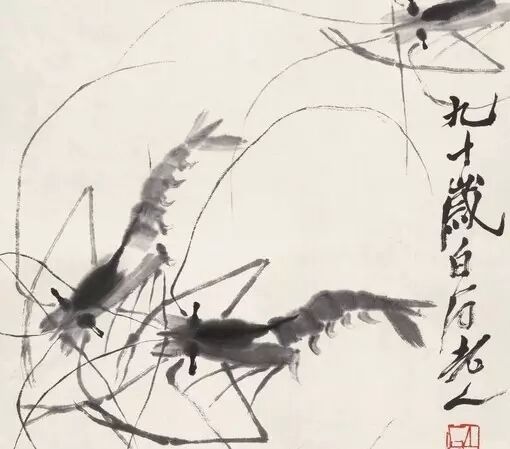 九十歲白石老人